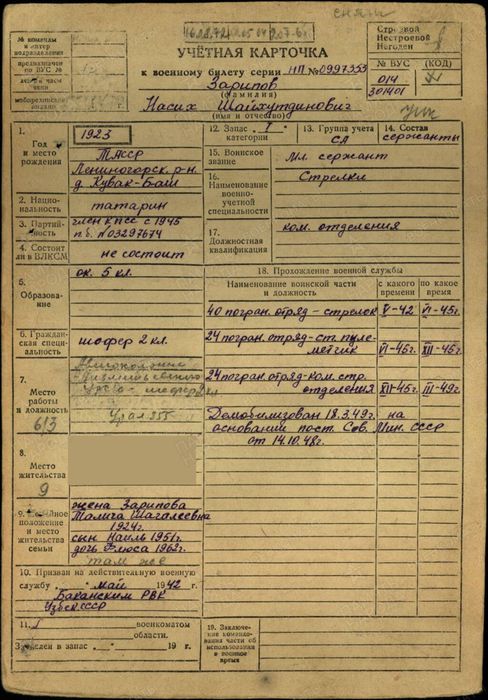 сняты
УЧЁТНАЯ КАРТОЧКА
к военному билету серии НП № 0997353
Зарипов
(фамилия)
Насих Шайхутдинович
(имя и отчество)
№ команды
предназначен
по ВУС №
Строевой
Нестроевой
Негоден
№ ВУС
(КОД)
014
301401
1.
Год
и место
рождения
1923
ТАССР
Лениногорск. р-н
д. Кувак-Баш
2. Национальность
татарин
3. Партийность
член КПСС с 1945
п.б. № 03297674
4. Состоит
ли в ВЛКСМ
не состоит
5.
Образование
ок. 5 кл.
6. Гражданская специальность
шофер 2 кл.
7.
Место
работы
и должность
6/3
Урал 355
8.
Место
жительства
9
9. Семейное
положение
и место
жительства
семьи
жена Зарипова
Шагалеевна
1924г.
сын Наиль 1951г.
дочь Флюса 1962г.
там же
10. Призван на действительную военную
службу „ “ май 1942 г.
Баканским РВК
Узбек.ССР
11.
военкоматом
области.
Зачислен в запас „ “ 19 г.
12. Запас I
категории
13. Группа учета
СА
14. Состав
сержанты
15. Воинское
звание
Мл. сержант
16.
Наименование
военно-
учетной
специальности
Стрелки
17.
Должностная
квалификация
ком. отделения
18. Прохождение военной службы
Наименование воинской части
и должность
с какого
времени
по какое
время
40 погран. отряд – стрелок V-42 VI-45г.
24 погран. отряд – ст. пулеметчик VI-45г. XII-45г.
24 погран. отряд – ком. стр.
отделения XII-45г. III-49г.
Демобилизован 18.3.49г. на
основании пост. Сов. Мин. СССР
от 14.10.48г.
19. Заключение
командования
части об
использовании
в военное
время